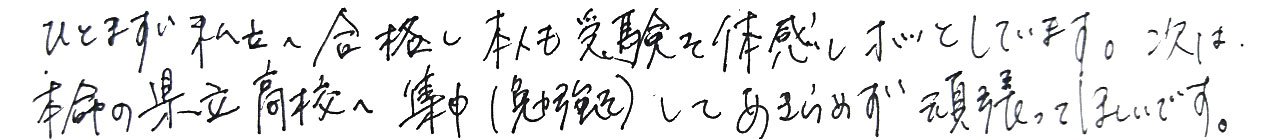 ひとまず私立へ合格し本人も受験を体感しホッとしています。次は、
本命の県立高校へ集中(勉強を)してあきらめず頑張ってほしいです。